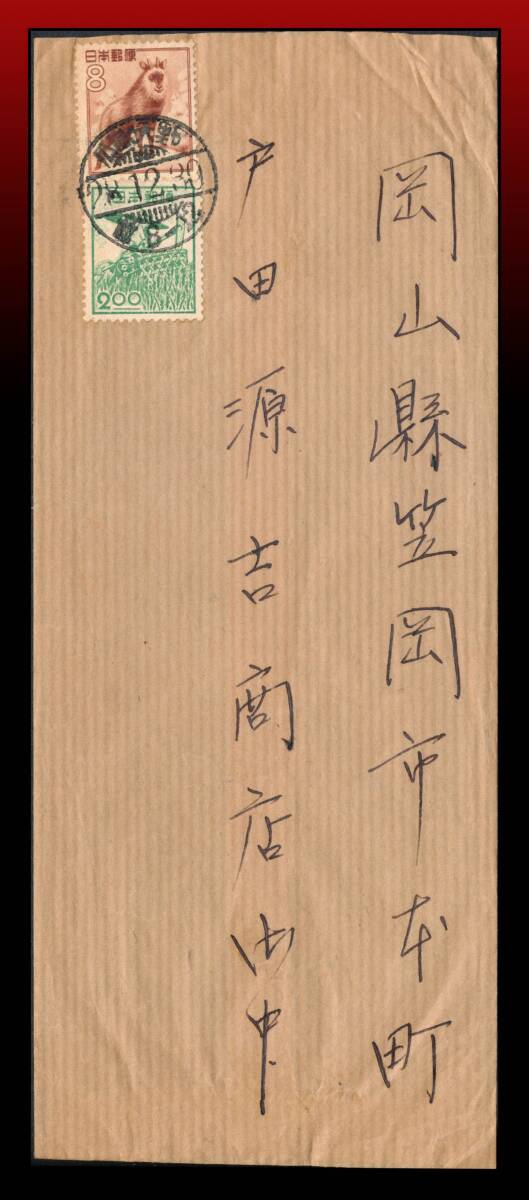 岡山縣笠岡市本町
戸田源吉商店御中
日本郵便
8
2.00
12.30